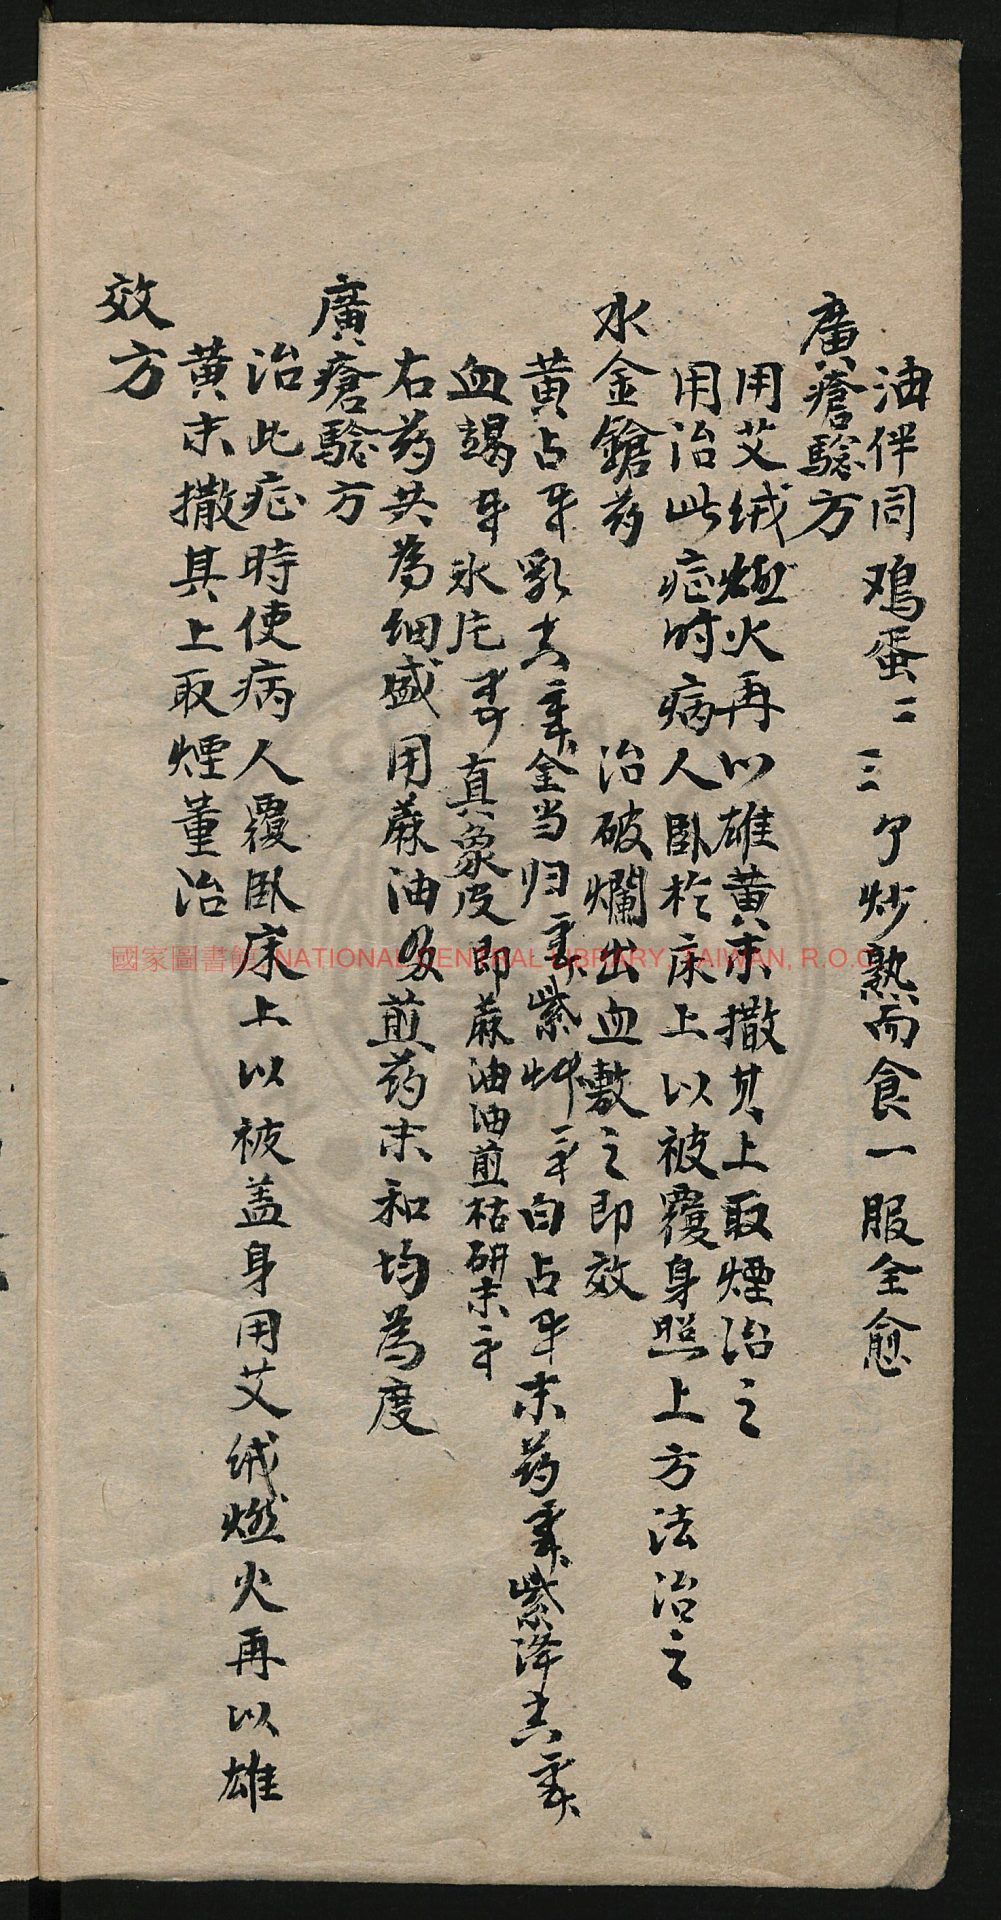 油伴同鳮蛋二三个炒熟而食一服全愈
廣瘡驗方
用艾绒燃火再以雄黄末撒其上取煙治之
用治此症时病人卧於床上以被覆身照上方法治之
水金鎗药 治破爛出血敷之即效
黄占 乳香 全当归 紫艸 白占 末药 紫降香
血竭 氷片 真象皮即蔴油油煎枯研末
右药共為細盛用蔴油 煎药末和均為度
廣瘡驗方
治此症時使病人覆卧床上以被盖身用艾绒燃火再以雄
黄末撒其上取煙薰治
效方
國家圖書館 NATIONAL CENTRAL LIBRARY, TAIWAN, R.O.C